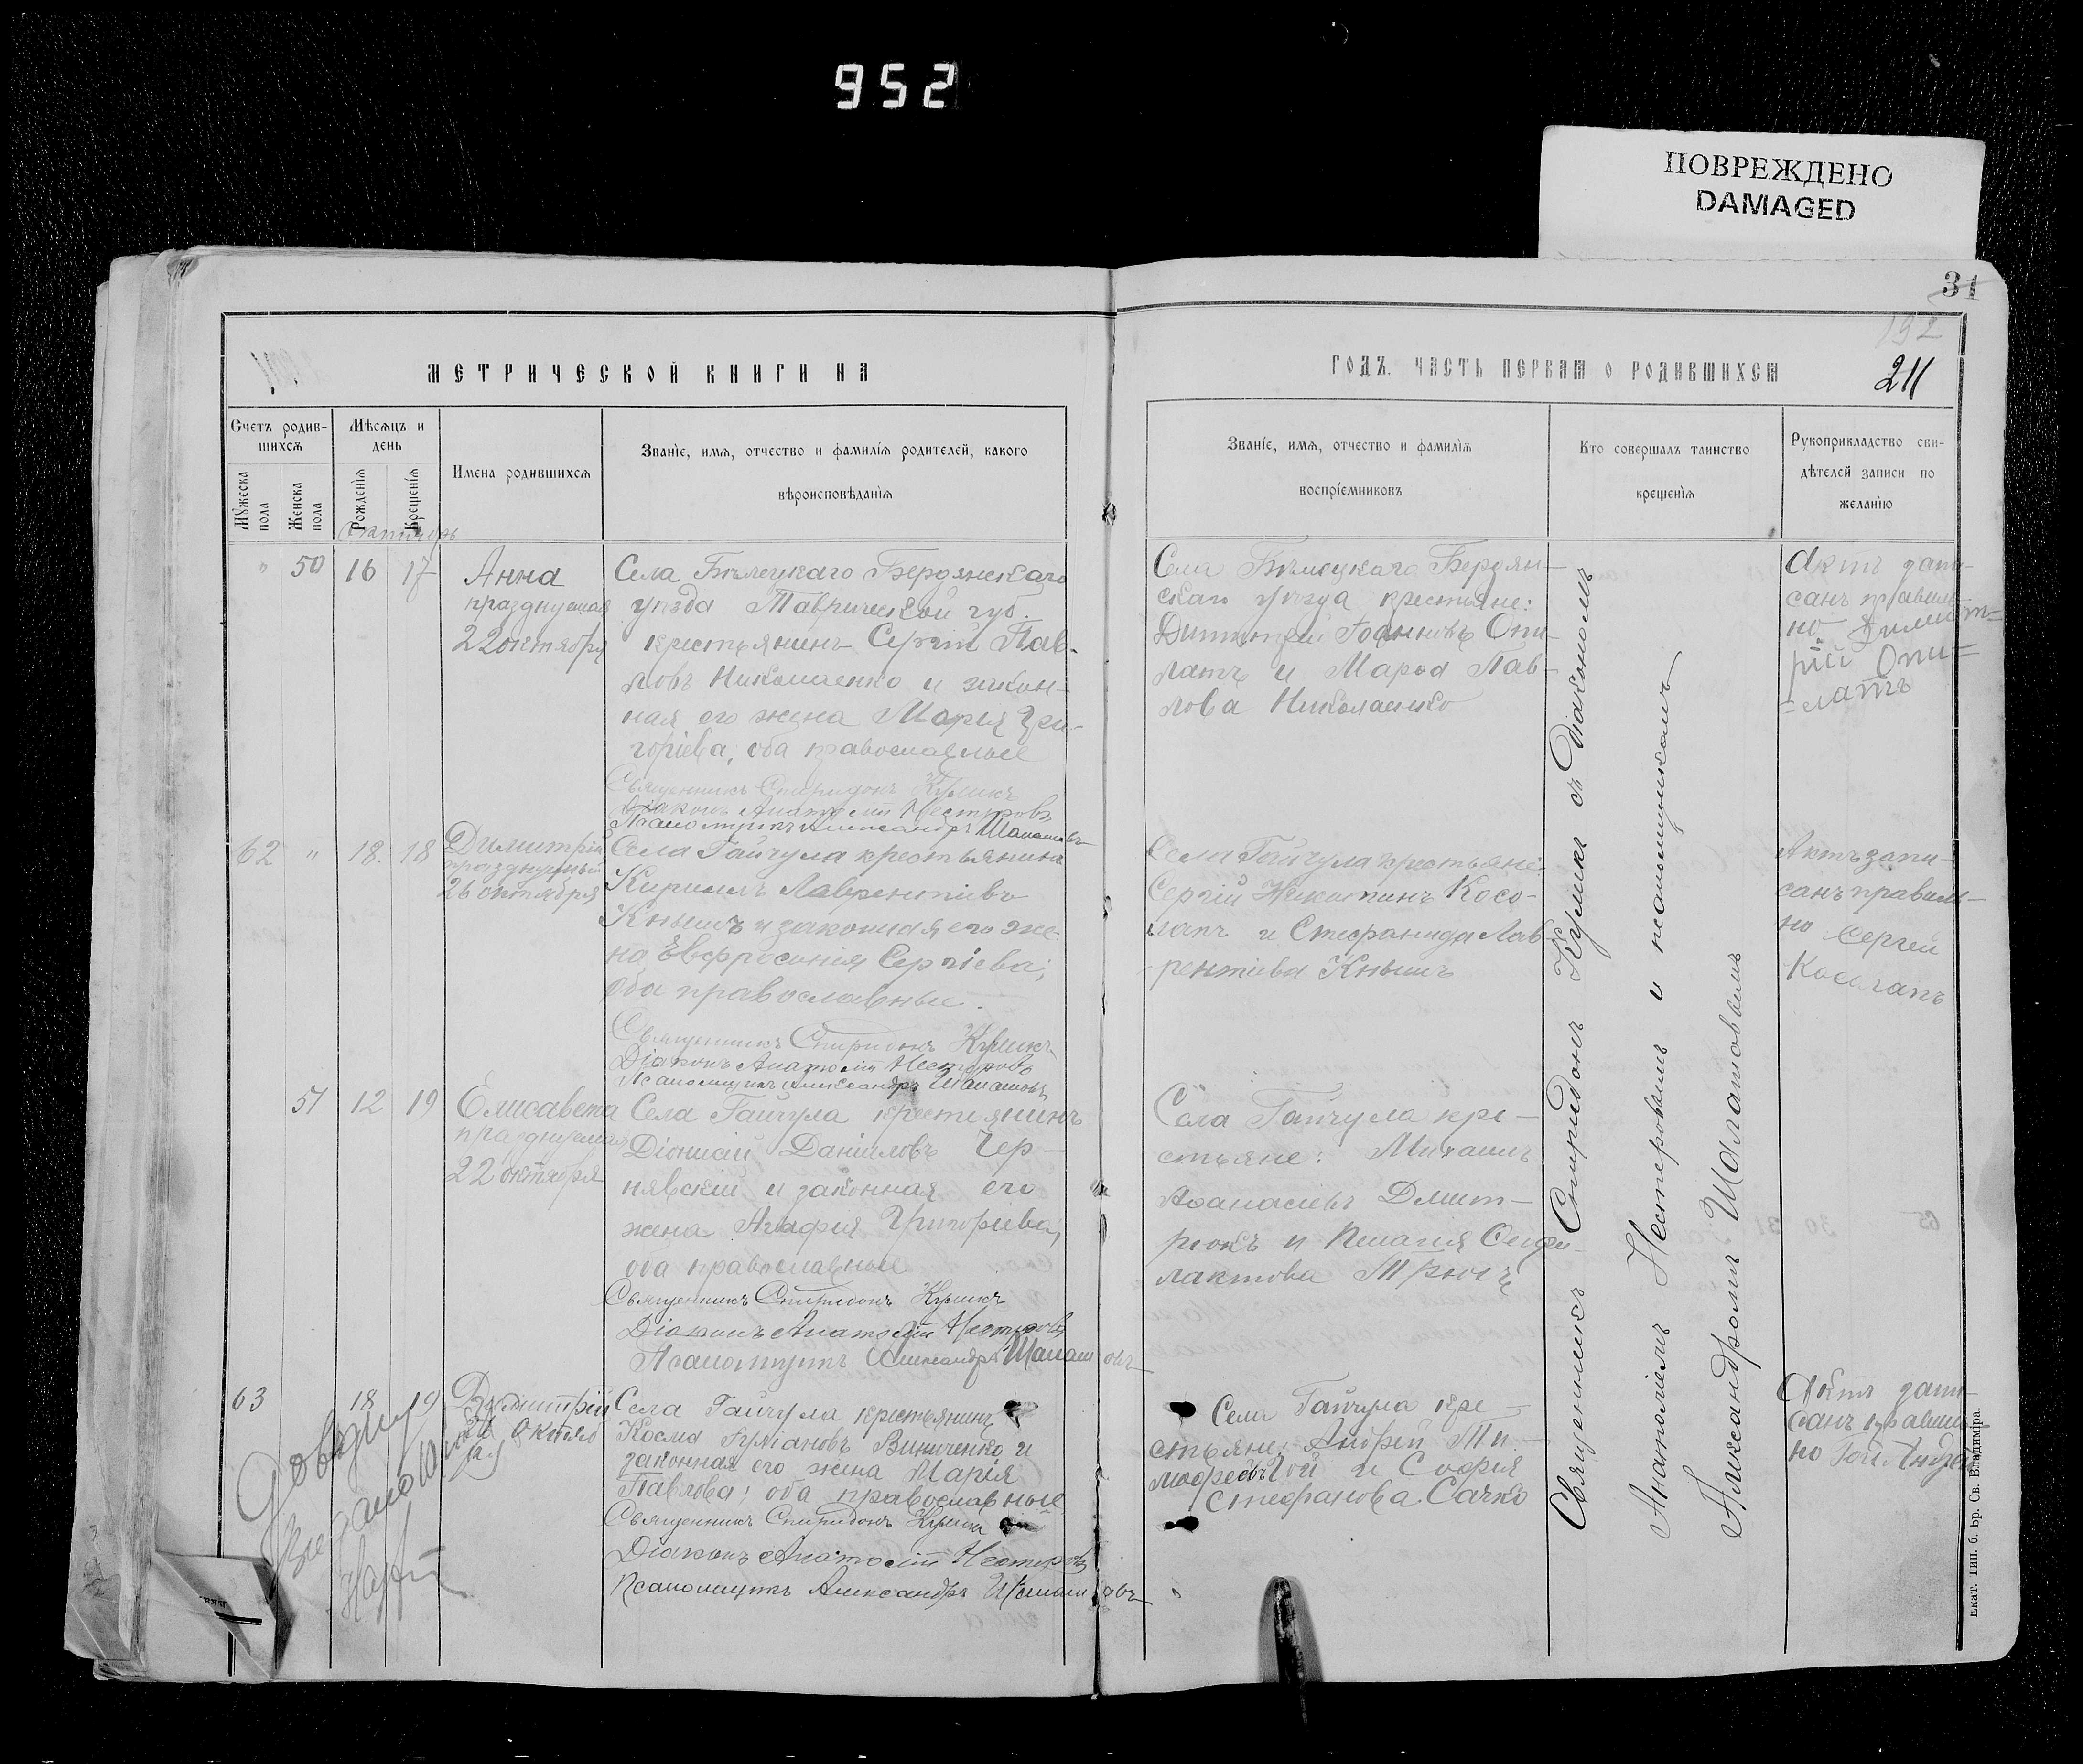 952
ПОВРЕЖДЕНО
DAMAGED
31
192
211
МЕТРИЧЕСКОЙ КНИГИ НА
ГОДЪ. ЧАСТЬ ПЕРВАЯ О РОДИВШИХСЯ
Счетъ родив-
шихся
Мужеска
пола
Женска
пола
Мѣсяцъ и
день
Рожденія
Крещенія
Имена родившихся
Званіе, имя, отчество и фамилія родителей, какого
вѣроисповѣданія
Званіе, имя, отчество и фамилія
воспріемниковъ
Кто совершалъ таинство
крещенія
Рукоприкладство сви-
дѣтелей записи по
желанію
Октябрь
" 50 16 17
Анна
празднуемая
22 октября
Села Бѣлецкаго Бердянскаго
уѣзда Таврической губ.
крестьянинъ Сергій Пав-
ловъ Николаенко и закон-
ная его жена Марія Гри-
горіева, оба православные
Священникъ Спиридонъ Куликъ
Діаконъ Анатолій Нестеровъ
Псаломщикъ Александръ
Села Бѣлецкаго Бердян-
скаго уѣзда крестьяне:
Димитрій Іоанновъ Опи-
латъ и Марѳа Пав-
лова Николаенко
Актъ запи-
санъ правиль-
но Димит-
рій Опи-
латъ
62 " 18 18
Димитрій
празднуемый
26 октября
Села Гайчула крестьянинъ
Кириллъ Лаврентіевъ
Кнышъ и законная его же-
на Евфросинія Сергіева,
оба православные.
Священникъ Спиридонъ Куликъ
Діаконъ Анатолій Нестеровъ
Псаломщикъ Александръ
Села Гайчула крестьяне:
Сергій Никитинъ Косо-
лапъ и Стефанида Лав-
рентіева Кнышъ
Актъ запи-
санъ правиль-
но Сергей
Косолапъ
51 12 19
Елисавета
празднуемая
22 октября
Села Гайчула крестьянинъ
Діонисій Даніиловъ Чер-
нявскій и законная его
жена Агафія Григоріева,
оба православные
Священникъ Спиридонъ Куликъ
Діаконъ Анатолій Нестеровъ
Псаломщикъ Александръ
Села Гайчула кре-
стьяне: Михаилъ
Аѳанасіевъ Дмит-
рюкъ и Пелагія
63 18 19
Димитрій
26 октяб
ря
Села Гайчула крестьянинъ
Косма Виниченко и
законная его жена Марія
Павлова; оба православные
Священникъ Спиридонъ Куликъ
Діаконъ Анатолій Нестеровъ
Псаломщикъ Александръ
Села Гайчула кре-
стьяне: Андрей Ти-
моѳеевъ Гой и Софія
Стефанова Сачко
Актъ запи-
санъ правиль-
но Гой Андрей
Священникъ Спиридонъ Куликъ съ Діакономъ
Анатоліемъ Нестеровымъ и псаломщикомъ
Александромъ
Екат. Тип. б. Бр. Св. Владиміра.